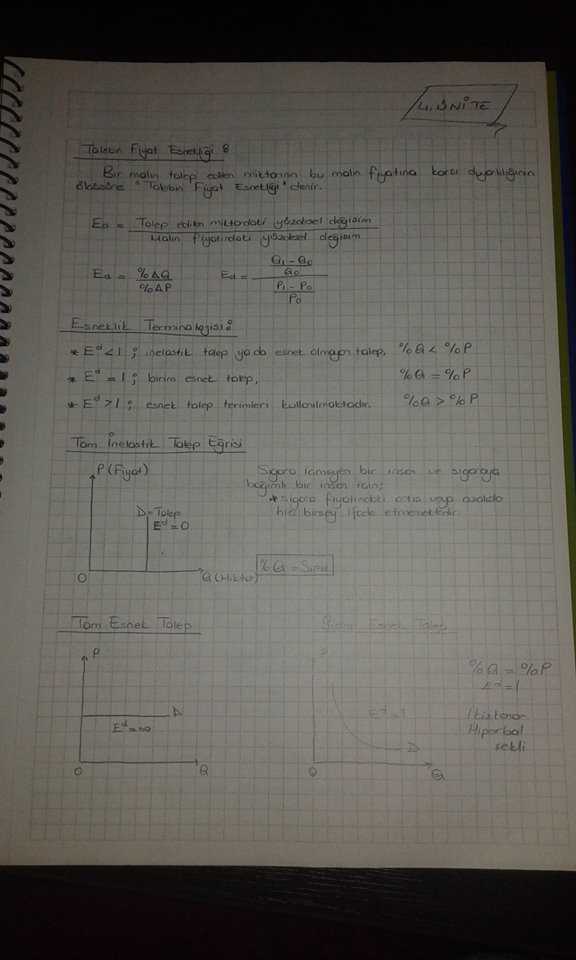 4. ÜNİTE
Talebin Fiyat Esnekliği :
Bir malın talep edilen miktarının bu malın fiyatına karşı duyarlılığının
ölçüsüne "Talebin Fiyat Esnekliği" denir.
Ed = Talep edilen miktardaki yüzdesel değişim
Malın fiyatındaki yüzdesel değişim
Ed = %ΔQ / %ΔP Ed = (Q1 - Q0 / Q0) / (P1 - P0 / P0)
Esneklik Terminolojisi:
* E^d < 1 ; inelastik talep yada esnek olmayan talep, %Q < %P
* E^d = 1 ; birim esnek talep, %Q = %P
* E^d > 1 ; esnek talep terimleri kullanılmaktadır. %Q > %P
Tam İnelastik Talep Eğrisi
P (Fiyat)
D = Talep
E^d = 0
0
Q (Miktar)
Sigara içmeyen bir insan ve sigaraya
bağımlı bir insan için;
* sigara fiyatındaki artış veya azalış
hiç birşey ifade etmemektedir.
%Q = Sıfır
Tam Esnek Talep
P
D
E^d = ∞
0
Q
Birim Esnek Talep
P
E^d = 1
D
0
Q
%Q = %P
E^d = 1
İkizkenar
Hiperbol
şekli